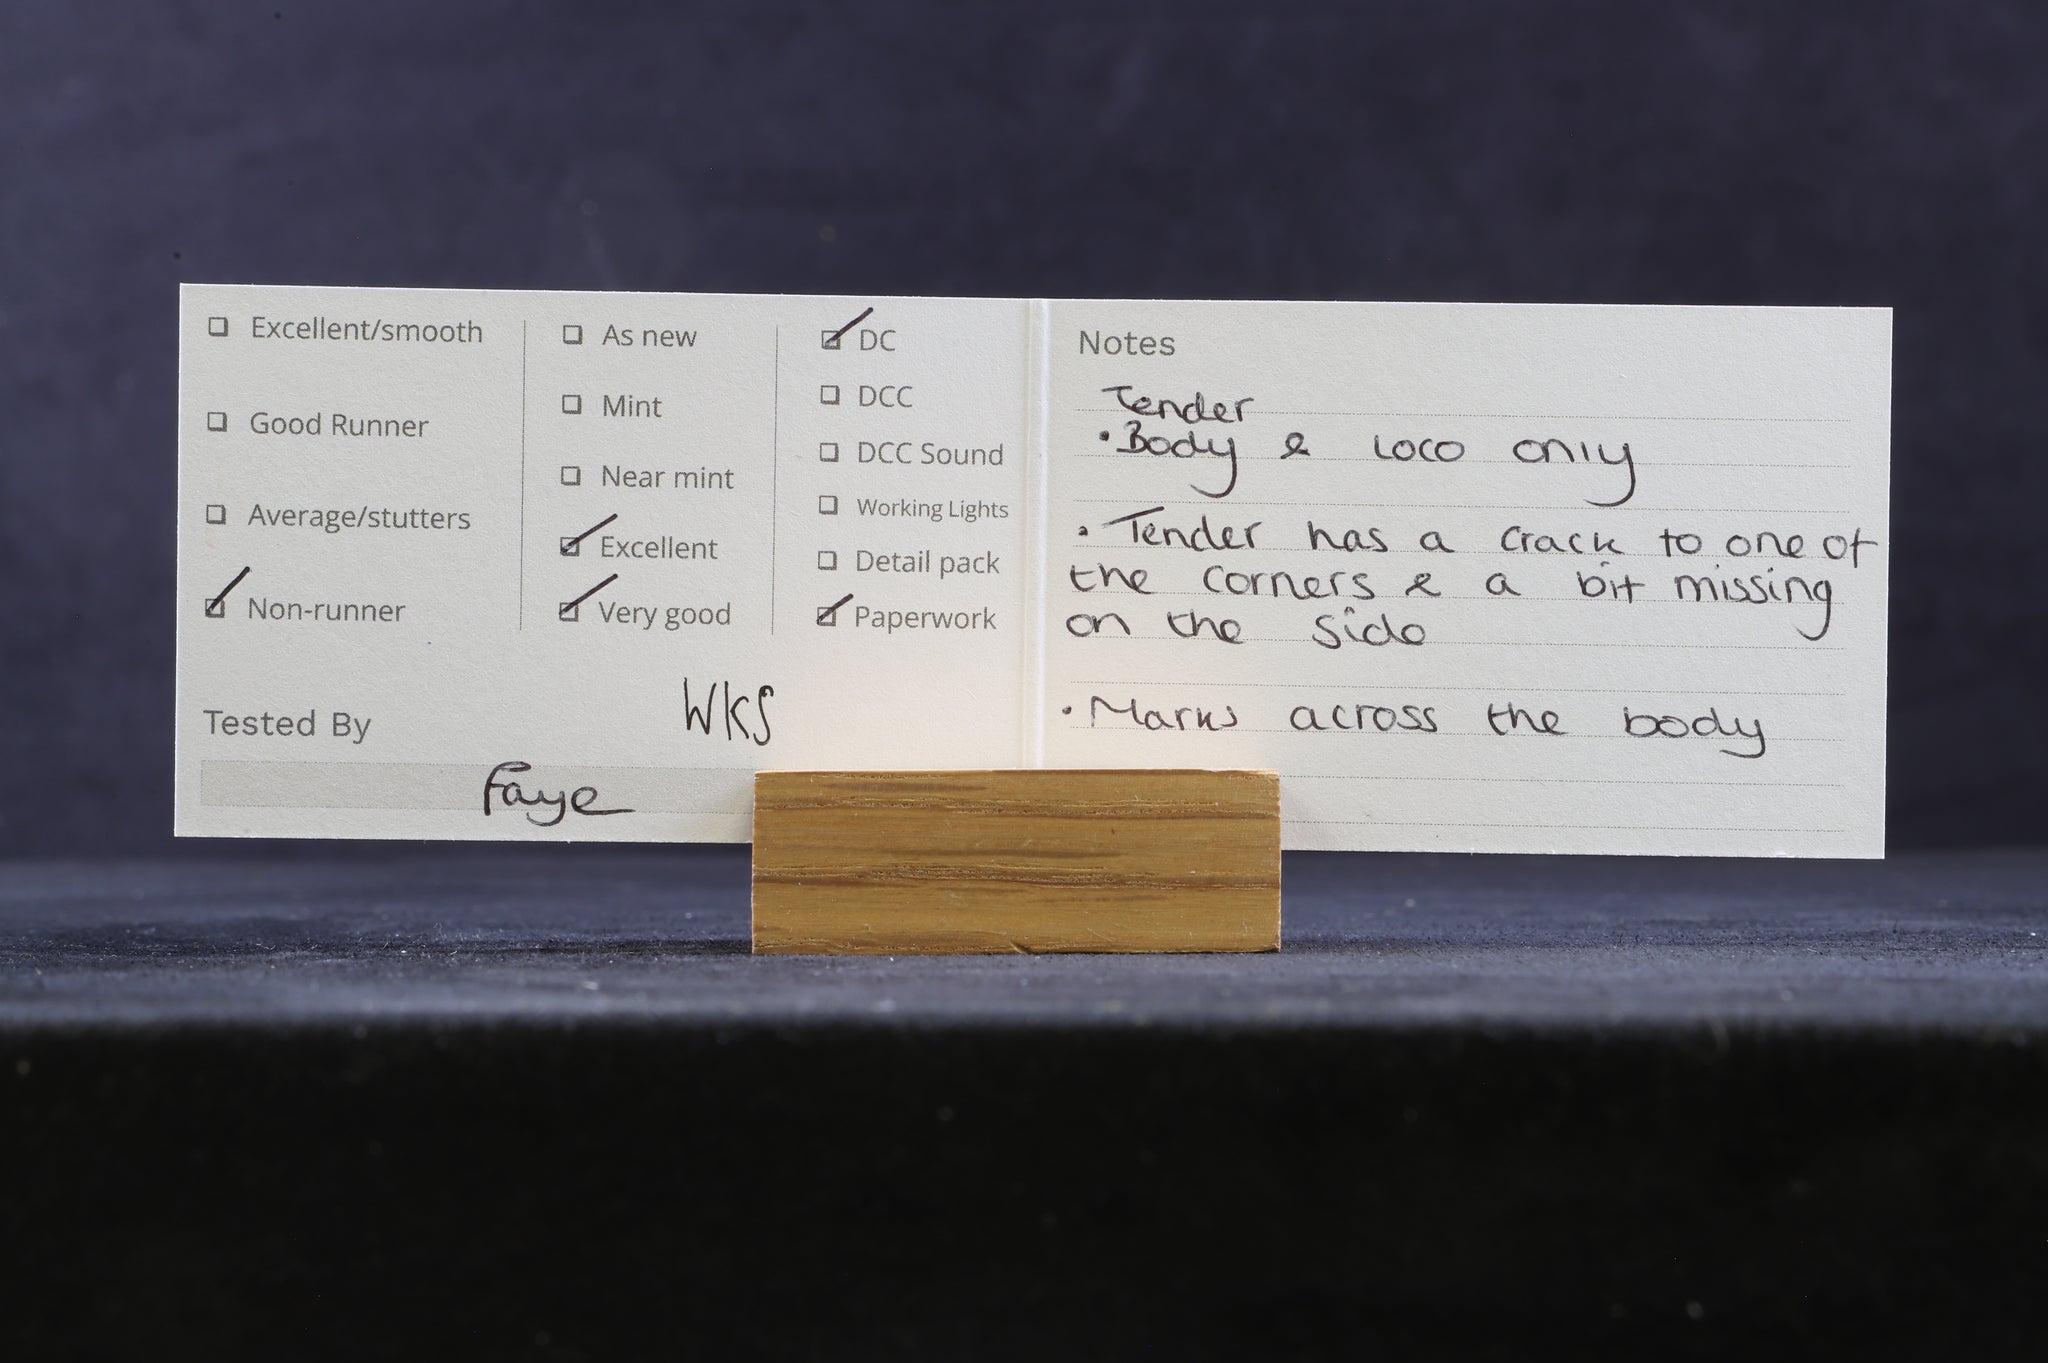 Excellent/smooth
Good Runner
Average/stutters
Non-runner
As new
Mint
Near mint
Excellent
Very good
DC
DCC
DCC Sound
Working Lights
Detail pack
Paperwork
WKS
Tested By
Faye
Notes
Tender
• Body & Loco only
• Tender has a crack to one of
the corners & a bit missing
on the side
• Marks across the body